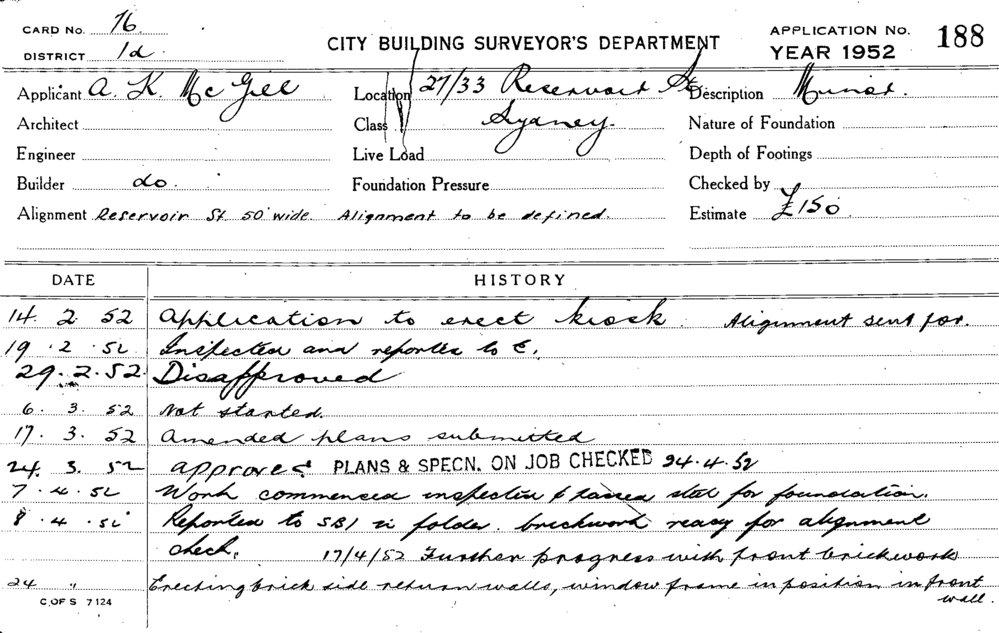 CARD No. 76.
DISTRICT 1d
CITY BUILDING SURVEYOR'S DEPARTMENT
APPLICATION No. 188
YEAR 1952
Applicant A. K. McGill Location 27/33 Reservoir St Description Minor.
Architect Class Sydney. Nature of Foundation
Engineer Live Load Depth of Footings
Builder do. Foundation Pressure Checked by
Alignment Reservoir St. 50' wide. Alignment to be defined. Estimate £150
DATE HISTORY
14. 2 52 Application to erect kiosk. Alignment sent for.
19 . 2 . 52 Inspected and reported to E.
29 . 2 . 52 Disapproved
6. 3. 52 Not started.
17. 3. 52 Amended plans submitted
24. 3. 52 approved PLANS & SPECN. ON JOB CHECKED 24.4.52
7 . 4 . 52 Work commenced inspected & passed steel for foundation.
8 . 4 . 52 Reported to SBI in folder. brickwork ready for alignment
check. 17/4/52 Further progress with front brickwork
24 " Erecting brick side return walls, window frame in position in front
wall.
C. OF S 7124